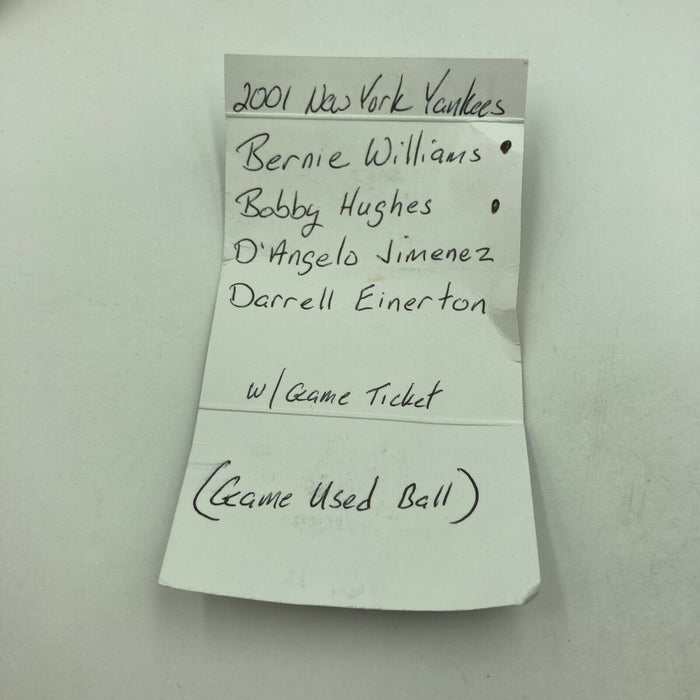 2001 New York Yankees
Bernie Williams
Bobby Hughes
D'Angelo Jimenez
Darrell Einerton
w/ Game Ticket
(Game Used Ball)